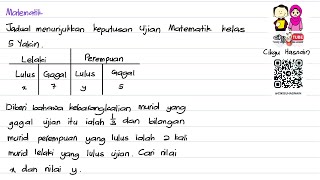 Matematik
Jadual menunjukkan keputusan Ujian Matematik kelas
5 Yakin.
Lelaki Perempuan
Lulus Gagal Lulus Gagal
x 7 y 5
Diberi bahawa kebarangkalian murid yang
gagal ujian itu ialah 1/3 dan bilangan
murid perempuan yang lulus ialah 2 kali
murid lelaki yang lulus ujian. Cari nilai
x dan nilai y.
Cikgu Hasnain